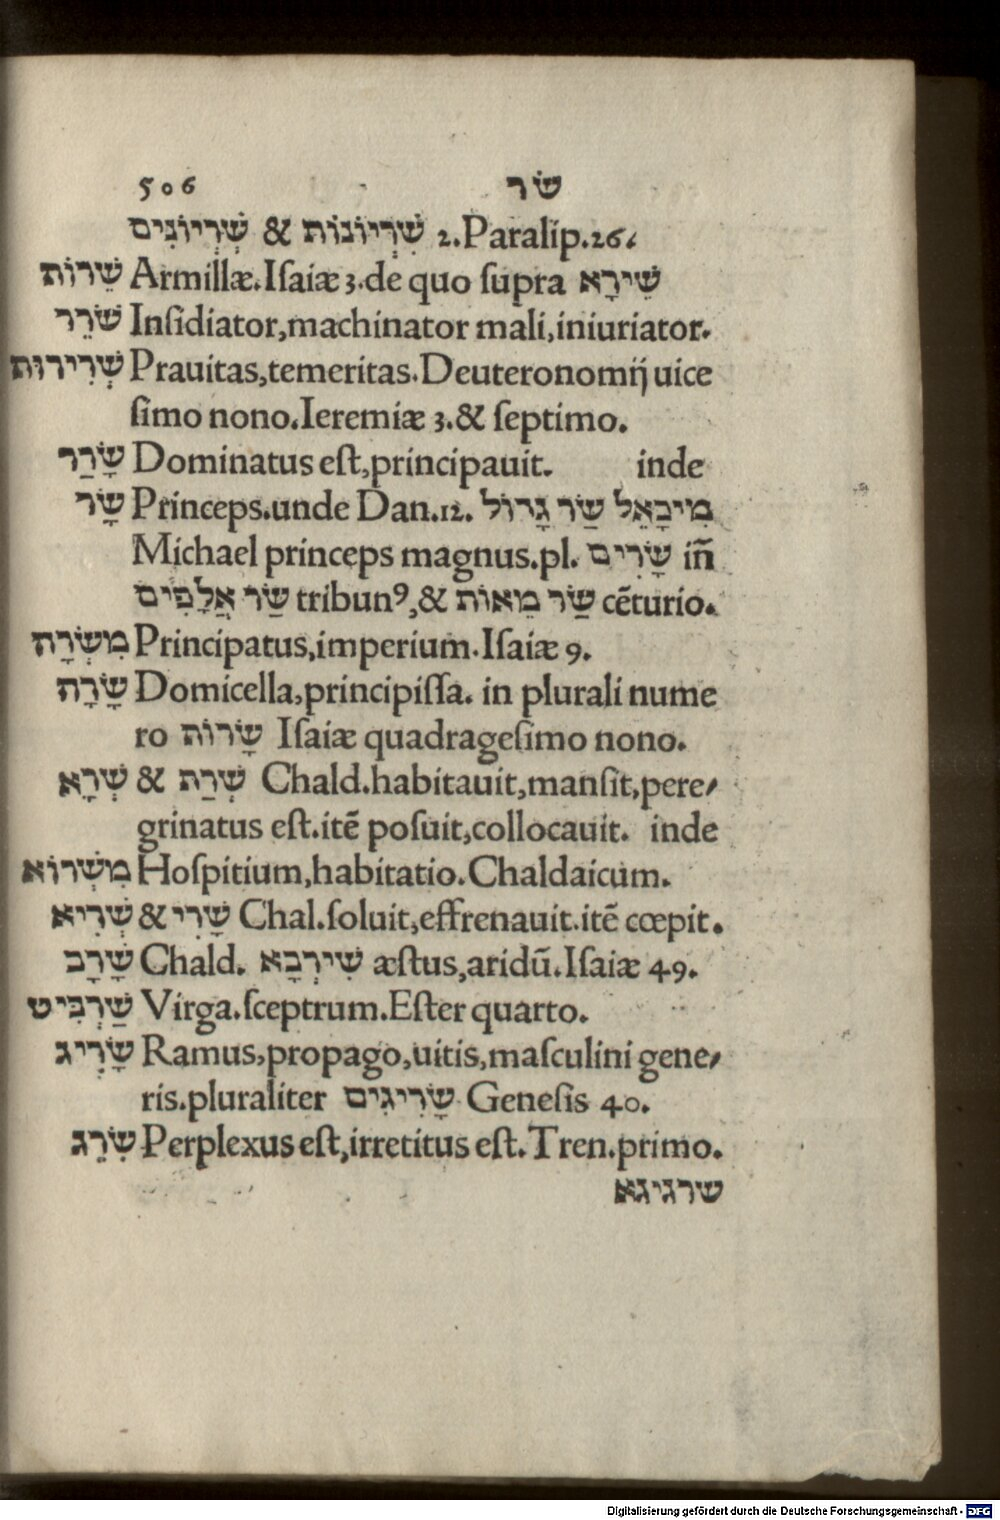 506 שׂר
שִׁרְיוֹנוֹת & שִׁרְיוֹנִים 2.Paralip.26.
שֵׁרוֹת Armillæ.Iſaiæ 3.de quo ſupra שֵׁירָא
שֹׁרֵר Inſidiator,machinator mali,iniuriator.
שְׁרִירוּת Prauitas,temeritas.Deuteronomij uice
ſimo nono.Ieremiæ 3.& ſeptimo.
שָׂרַר Dominatus eſt,principauit. inde
שָׂר Princeps.unde Dan.12. מִיכָאֵל שַׂר גָּדוֹל
Michael princeps magnus.pl. שָׂרִים iñ
שַׂר אֲלָפִים tribunꝰ,& שַׂר מֵאוֹת cẽturio.
מִשְׂרָה Principatus,imperium.Iſaiæ 9.
שָׂרָה Domicella,principiſſa. in plurali nume
ro שָׂרוֹת Iſaiæ quadrageſimo nono.
שְׁרָא & שְׁרַה Chald.habitauit,manſit,pere/
grinatus eſt.itẽ poſuit,collocauit. inde
מִשְׁרוֹא Hoſpitium,habitatio.Chaldaicum.
שְׁרִיא & שָׁרִי Chal.ſoluit,effrenauit.itẽ cœpit.
שָׁרָב Chald. שִׁירְבָא æſtus,aridũ.Iſaiæ 49.
שַׁרְבִּיט Virga.ſceptrum.Eſter quarto.
שָׂרִיג Ramus,propago,uitis,maſculini gene/
ris.pluraliter שָׂרִיגִים Geneſis 40.
שִׂרֵג Perplexus eſt,irretitus eſt.Tren.primo.
שרגיגא
Digitalisierung gefördert durch die Deutsche Forschungsgemeinschaft - DFG